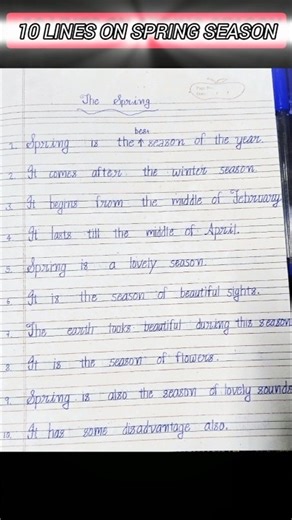 10 LINES ON SPRING SEASON
The Spring
best
1. Spring is the season of the year.
2. It comes after the winter season.
3. It begins from the middle of February
4. It lasts till the middle of April.
5. Spring is a lovely season.
6. It is the season of beautiful sights.
7. The earth looks beautiful during this season
8. It is the season of flowers.
9. Spring is also the season of lovely sounds
10. It has some disadvantage also.